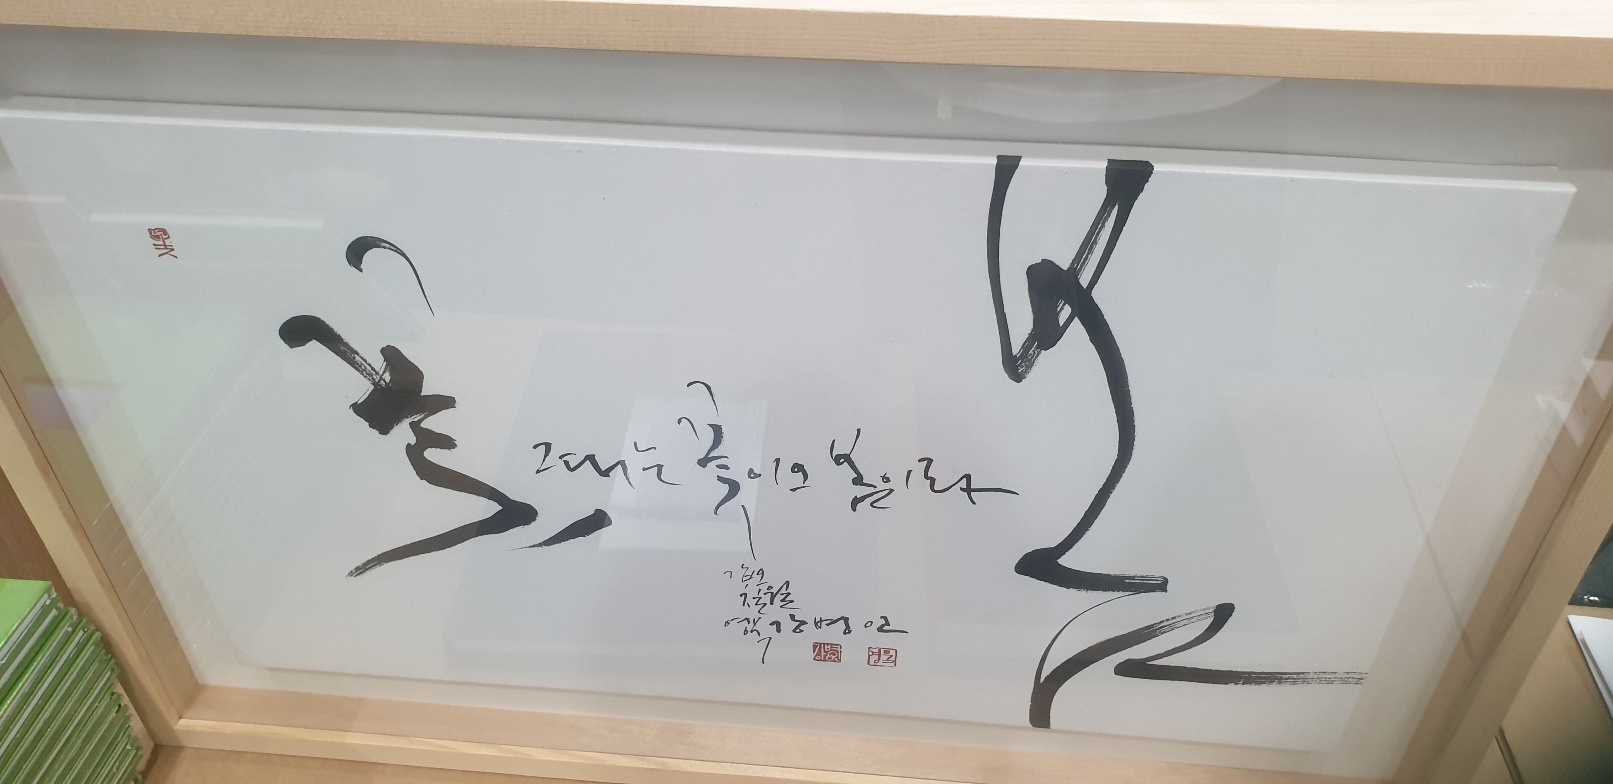 꽃
봄
그대는 꽃이오 봄이라
갑오
칠월
영묵 강병인